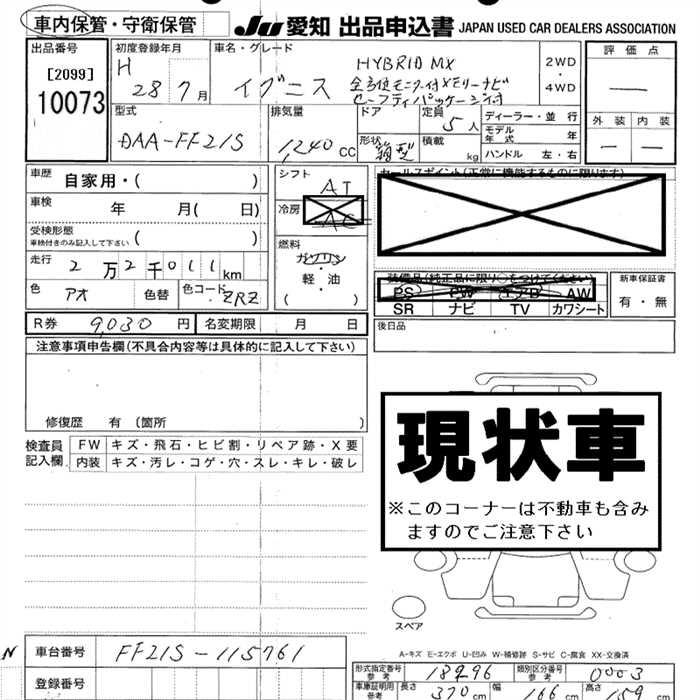 車内保管・守衛保管 JU 愛知 出品申込書 JAPAN USED CAR DEALERS ASSOCIATION
出品番号 初度登録年月 車名・グレード 評価点
[2099] H HYBRID MX 2WD
10073 28 7月 イグニス 全方位モニター付メモリーナビ ・
セーフティパッケージ付 4WD
型式 排気量 ドア 定員 ディーラー・並行
DAA-FF21S 1,240 CC 5人 モデル年式 年 外装 内装
形状 箱型 積載 kg ハンドル 左・右
車歴 自家用・( ) シフト AT セールスポイント(正常に機能するものに限ります)
車検 年 月( 日) 冷房 AC
受検形態 ( )
車検付きのみ記入して下さい
燃料 ガソリン
走行 2万2千011km 軽・油
( )
装備品(純正品に限り○をつけてください) 新車保証書
色 アオ 色替 色コード ZRZ PS PW エアB AW 有・無
SR ナビ TV カワシート
R券 9,030 円 名変期限 月 日 後日品
注意事項申告欄(不具合内容等は具体的に記入して下さい)
修復歴 有 (箇所 )
現状車
※このコーナーは不動車も含み
ますのでご注意下さい
検査員 FW キズ・飛石・ヒビ割・リペア跡・X要
記入欄 内装 キズ・汚レ・コゲ・穴・スレ・キレ・破レ
スペア
A-キズ E-エクボ U-凹み W-補修跡 S-サビ C-腐食 XX-交換済
N 車台番号 FF21S-115761
登録番号
形式指定番号 参考 18296 類別区分番号 参考 0003
車庫証明用 参考 長さ 370 cm 幅 166 cm 高さ 159 cm